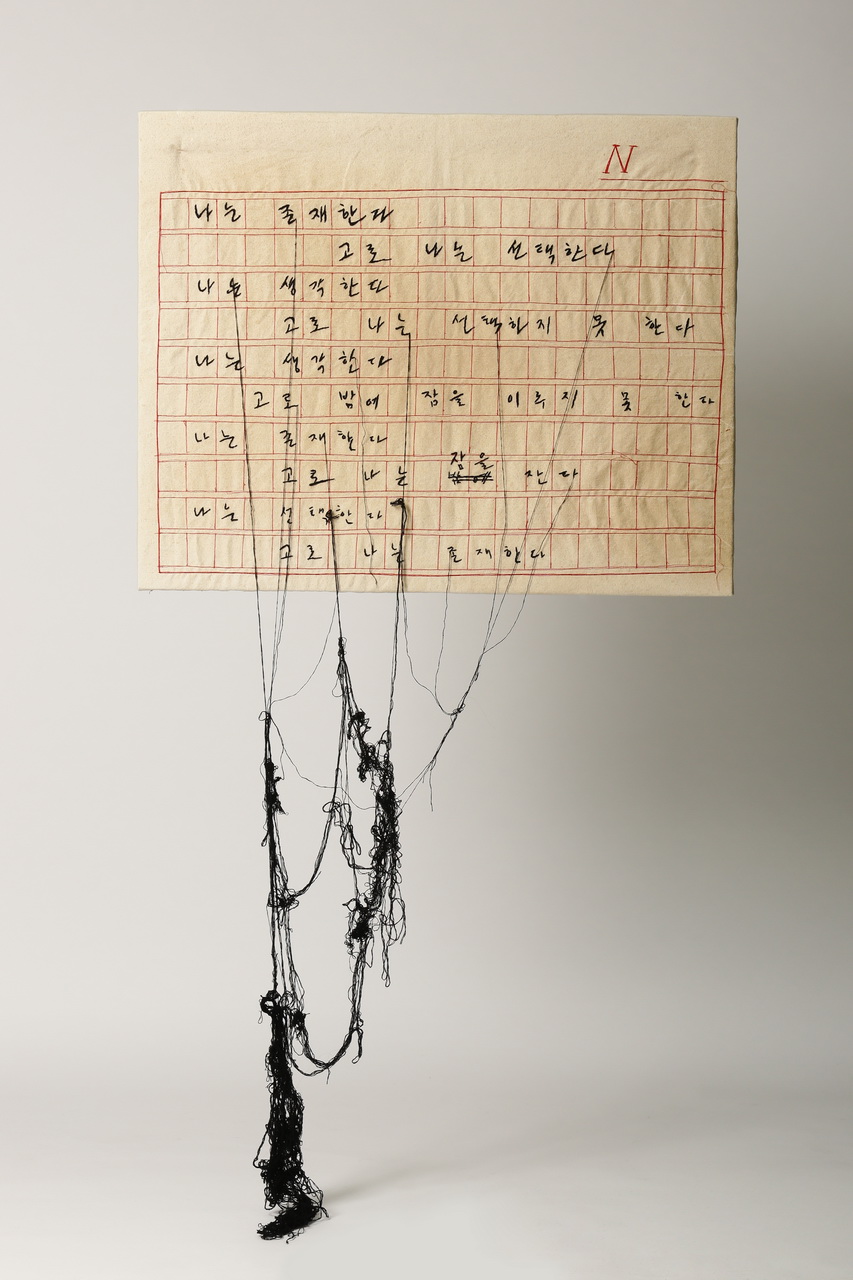 N
나는 존재한다
고로 나는 선택한다
나는 생각한다
고로 나는 선택하지 못 한다
나는 생각한다
고로 밤에 잠을 이루지 못 한다
나는 존재한다
잠을
고로 나는 밤에 잔다
나는 선택한다
고로 나는 존재한다